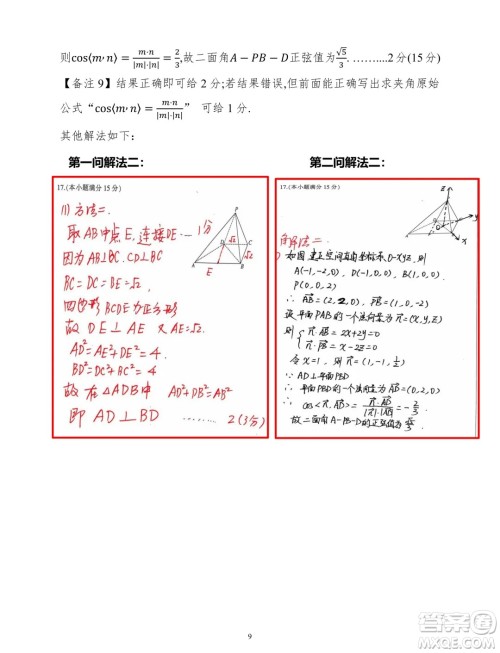 则cos⟨m·n⟩=m·n/|m|·|n|=2/3,故二面角A−PB−D正弦值为√5/3. ………...2分(15分)
【备注9】结果正确即可给2分;若结果错误,但前面能正确写出求夹角原始
公式“cos⟨m·n⟩=m·n/|m|·|n|” 可给1分.
其他解法如下:
第一问解法二:
17.(本小题满分15分)
(1) 方法二.
取AB中点E,连接DE 1分
因为AB⊥BC.CD⊥BC
BC=DC=DE=√2
四边形BCDE为正方形
故DE⊥AE又AE=√2.
AD²=AE²+DE²=4
BD²=DC²+BC²=4
故在△ADB中 AD²+DB²=AB²
即AD⊥BD 2(3分)
P
D √2 C
√2
A E B
第二问解法二:
17.(本小题满分15分)
解法二:
如图建立空间直角坐标系D-xyz,则
A(-1,-2,0) D(-1,0,0) B(1,0,0)
P(0,0,2)
∴ AB=(2,2,0) PB=(1,0,-2)
设平面PAB的一个法向量为n=(x,y,z)
则 { n·AB=2x+2y=0
n·PB=x-2z=0
令x=1,则n=(1,-1,1/2)
∵AD⊥平面PBD
∴平面PBD的一个法向量为(0,2,0)
∴cos<n,AD>=n·AD/|n|·|AD|=-2/3
故二面角A-PB-D的正弦值为√5/3
9